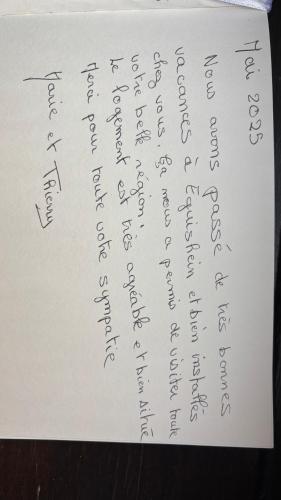 Mai 2025
Nous avons passé de très bonnes
vacances à Eguisheim et bien installés
chez vous. Ça nous a permis de visiter toute
votre belle région.
Le logement est très agréable et bien situé
Merci pour toute votre sympatie
Marie et Thierry